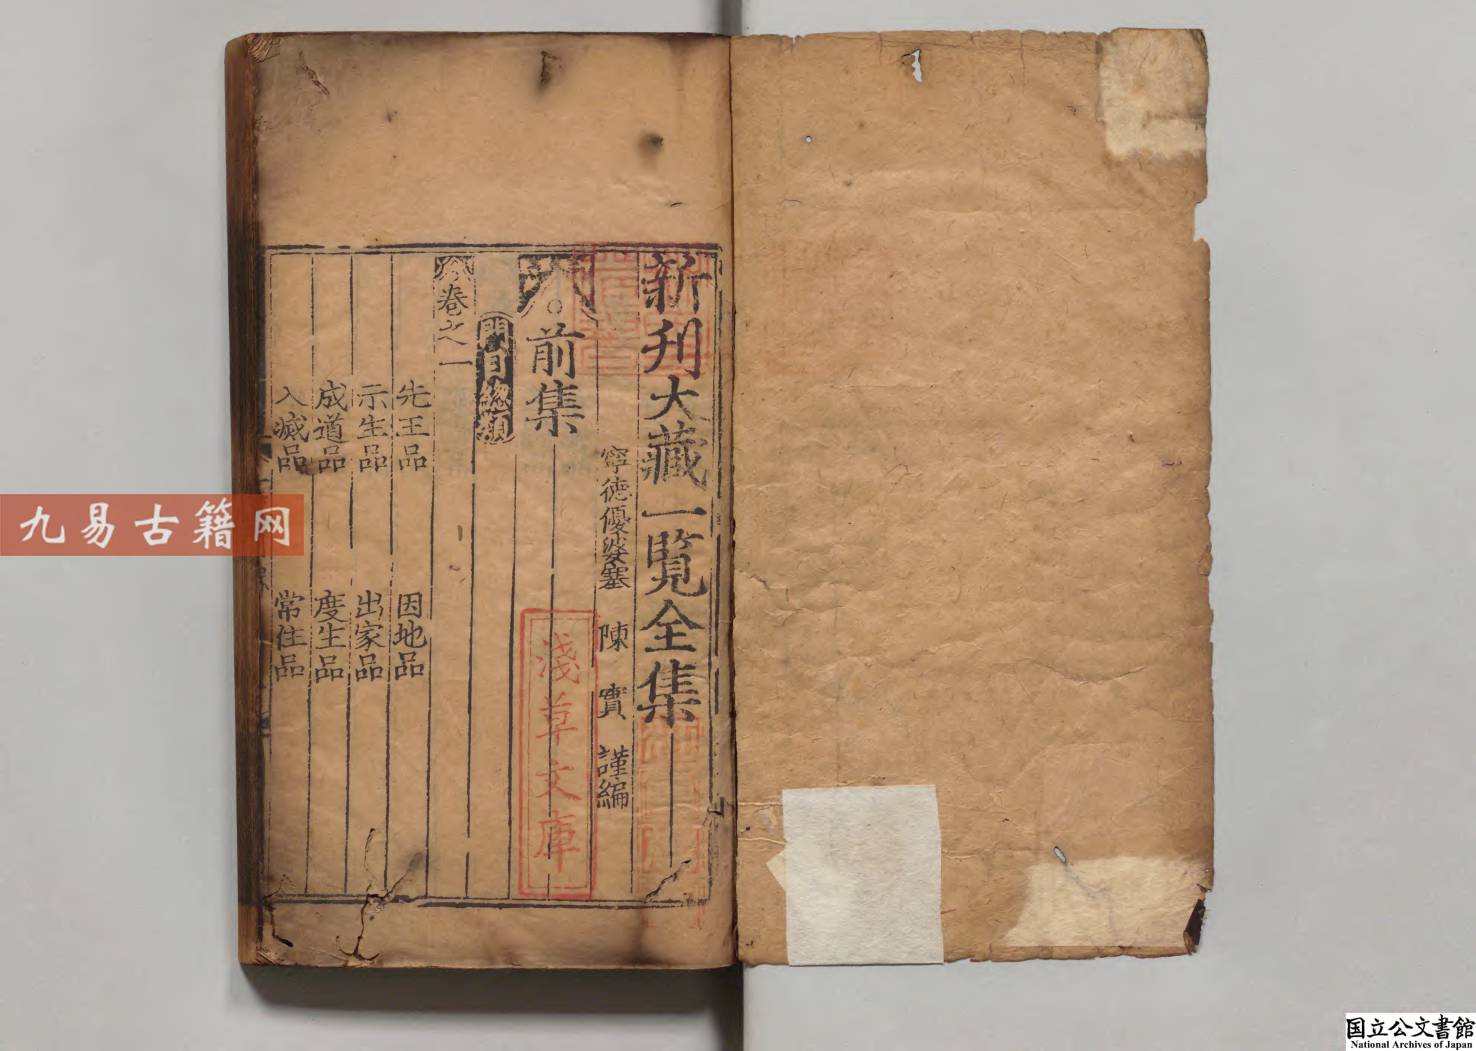 新刋大藏一覽全集
寧德優婆塞 陳 實 謹編
○前集
門目總類
卷之一
先王品 因地品
示生品 出家品
成道品 度生品
入滅品 常住品
淺草文庫
九易古籍网
国立公文書館
National Archives of Japan